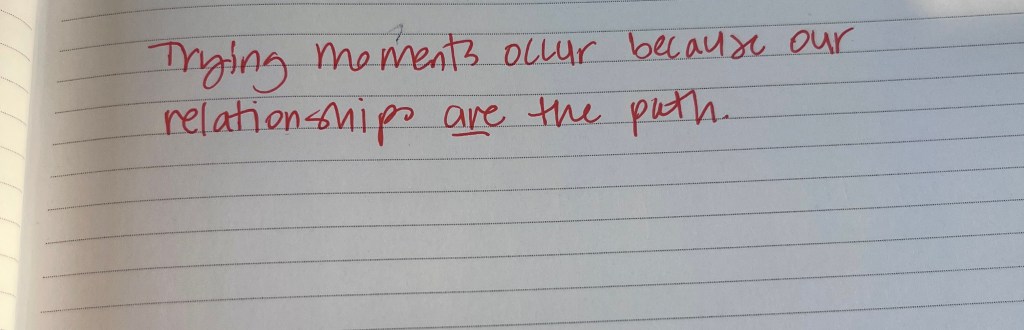 Trying moments occur because our
relationships are the path.